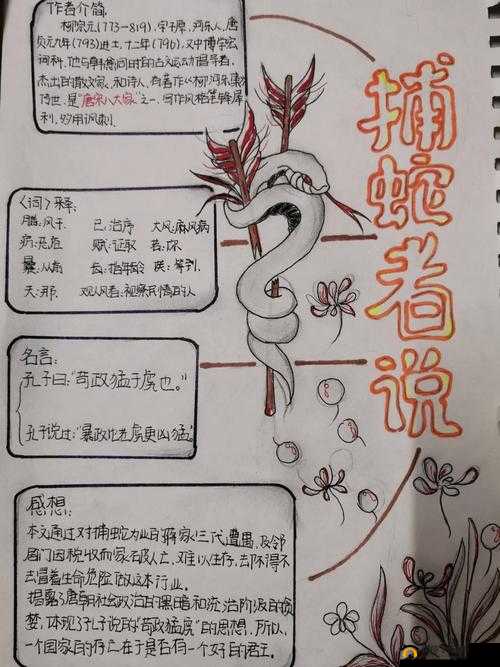 捕蛇者说
作者介简
柳宗元(773—819),字子厚,河东人,唐
贞元九年(793)进士,十二年(796),又中博学宏
词科,他与韩愈同时的古文运动倡导者,
杰出的散文家,和诗人,有著作《柳河东集》
传世,是"唐宋八大家"之一,写作风格
利,妙用讽刺.
《词》释:
腊:风干 已:治疗 大风:麻风病
赋:征取 若:你
齿:指年龄
观人风者:视察民情的人
名言:
孔子曰:"苛政猛于虎也。"
孔子说过:"暴政比老虎更凶猛."
感想:
本文通过对捕蛇为业的蒋家三代遭遇,及邻
居们因税收而家破人亡,难以生存,去不得不
去冒着生命危险做这本行业.
揭露了唐朝社会政治的黑暗和统治阶级的贪
婪,体现了孔子说的"苛政猛虎"的思想,所以,
一个国家的存亡在于是否有一个好的君王.